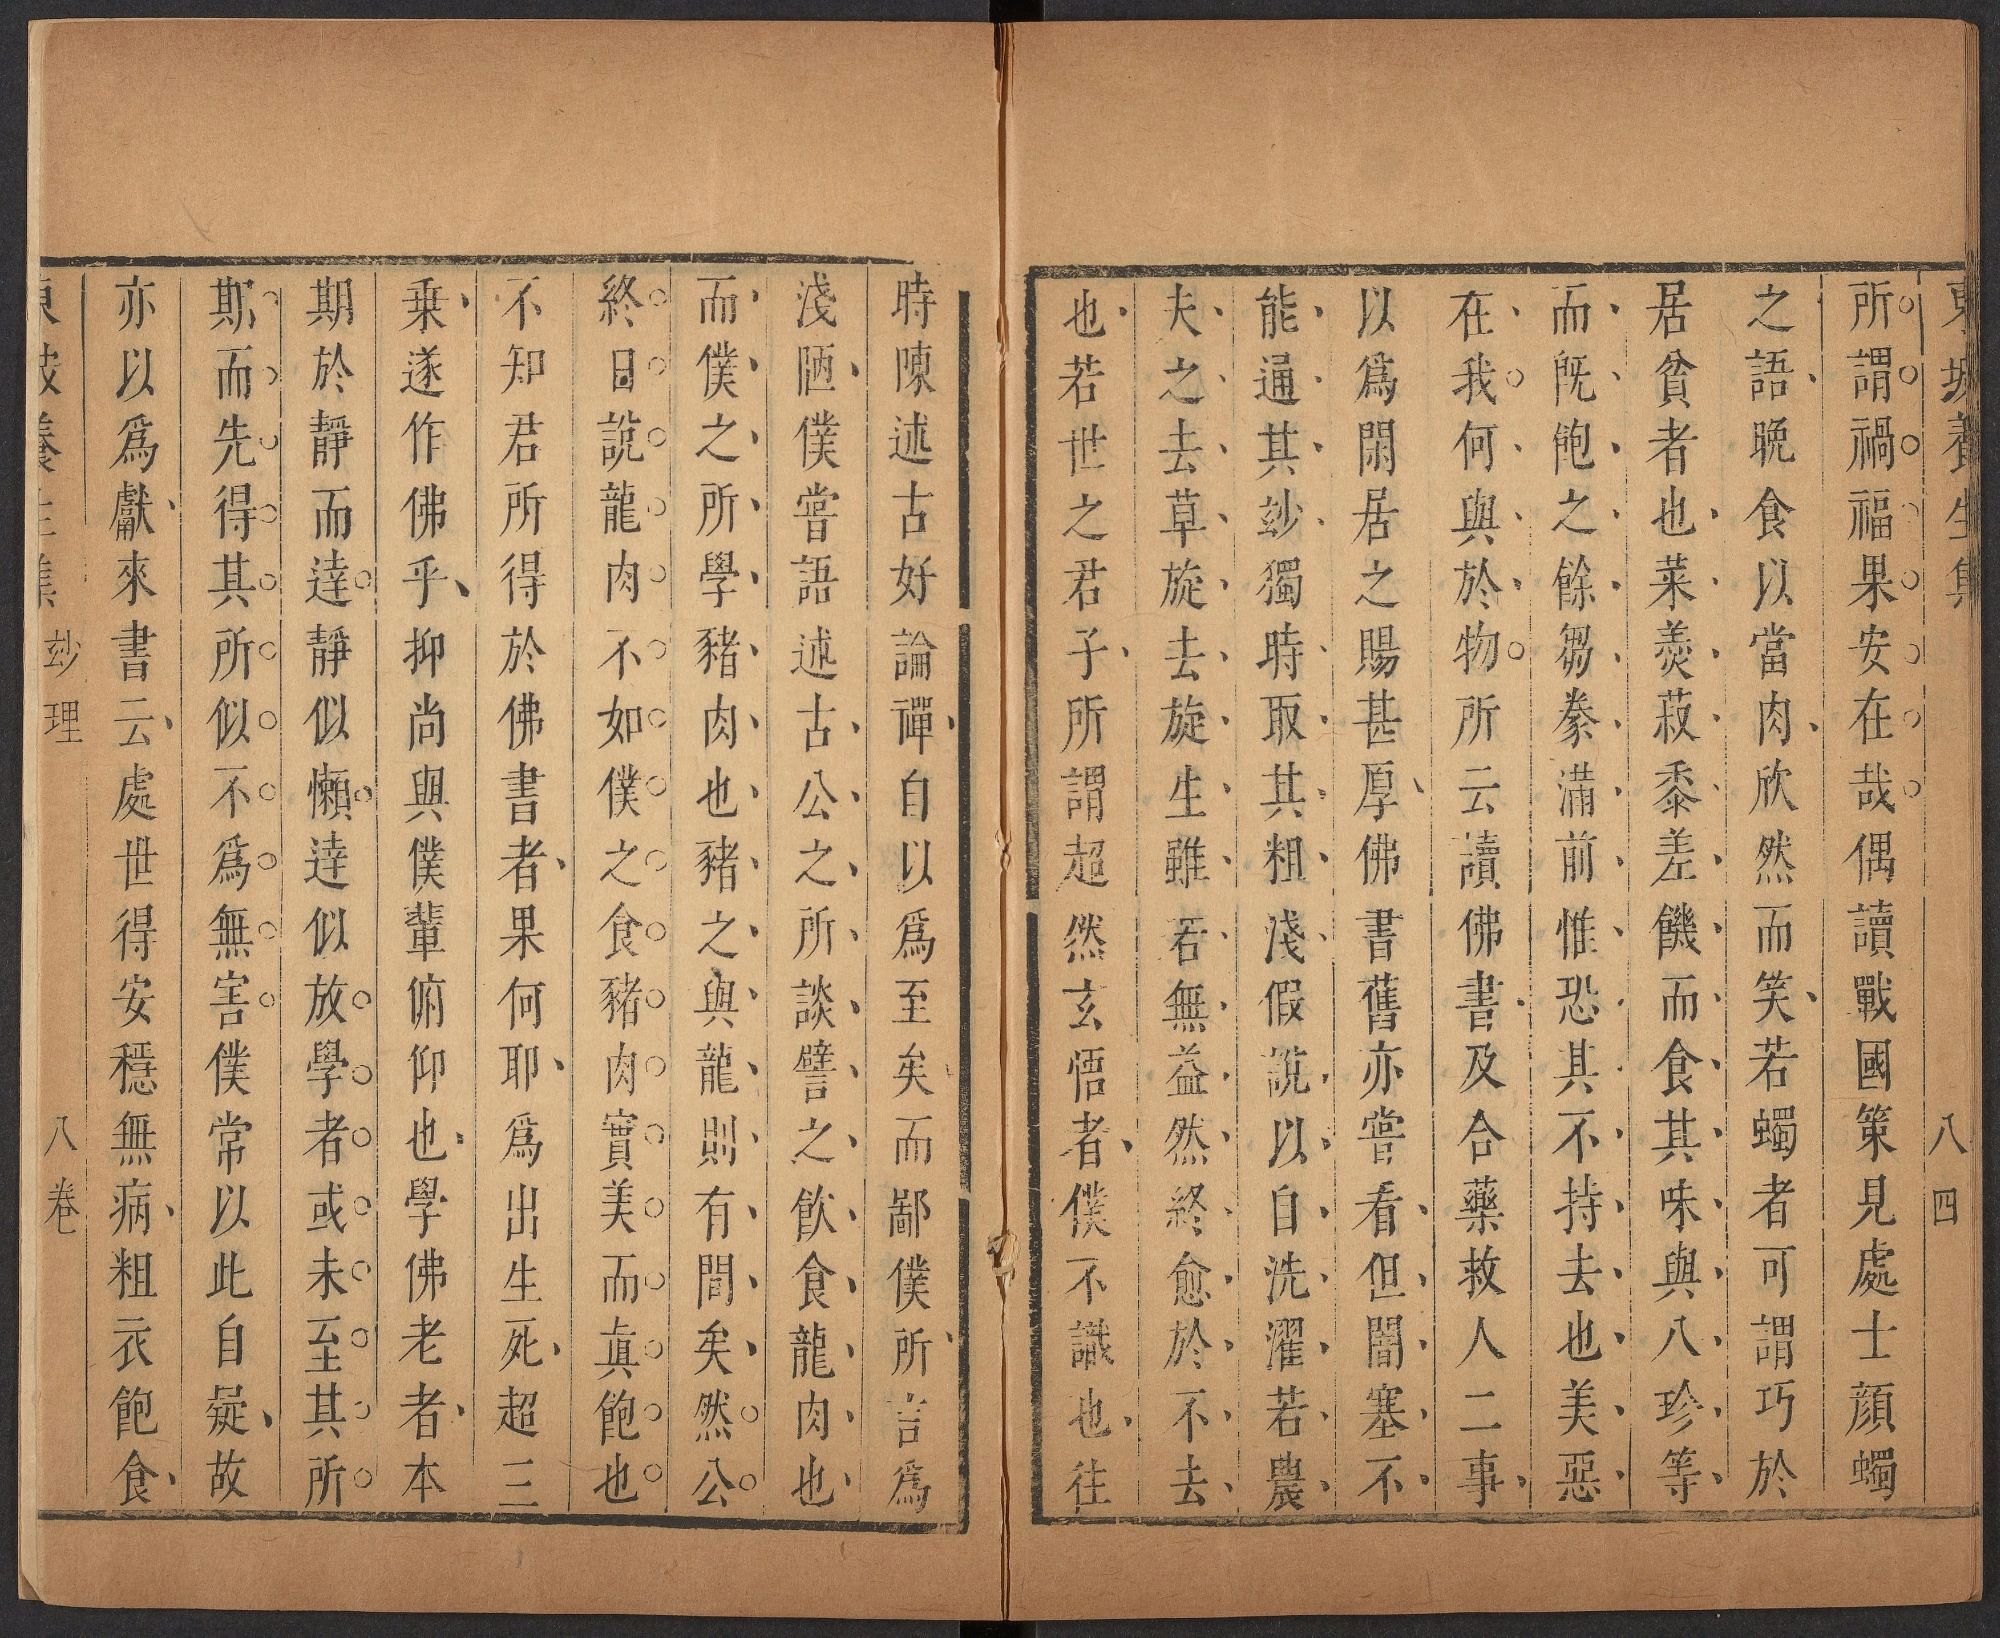 東坡養生集 八 四
所謂禍福果安在哉偶讀戰國策見處士顔蠋
之語晩食以當肉欣然而笑若蠋者可謂巧於
居貧者也菜羮菽黍差饑而食其味與八珍等
而旣飽之餘芻豢滿前惟恐其不持去也美惡
在我何與於物所云讀佛書及合藥救人二事
以爲閑居之賜甚厚佛書舊亦嘗看但闇塞不
能通其玅獨時取其粗淺假說以自洗濯若農
夫之去草旋去旋生雖若無益然終愈於不去
也若世之君子所謂超然玄悟者僕不識也往
時陳述古好論禪自以爲至矣而鄙僕所言爲
淺陋僕嘗語述古公之所談譬之飮食龍肉也
而僕之所學豬肉也豬之與龍則有間矣然公
終日說龍肉不如僕之食豬肉實美而眞飽也
不知君所得於佛書者果何耶爲出生死超三
乗遂作佛乎抑尚與僕輩俯仰也學佛老者本
期於靜而達靜似懶達似放學者或未至其所
期而先得其所似不爲無害僕常以此自疑故
亦以爲獻來書云處世得安穩無病粗衣飽食
東坡養生集 玅理 八卷